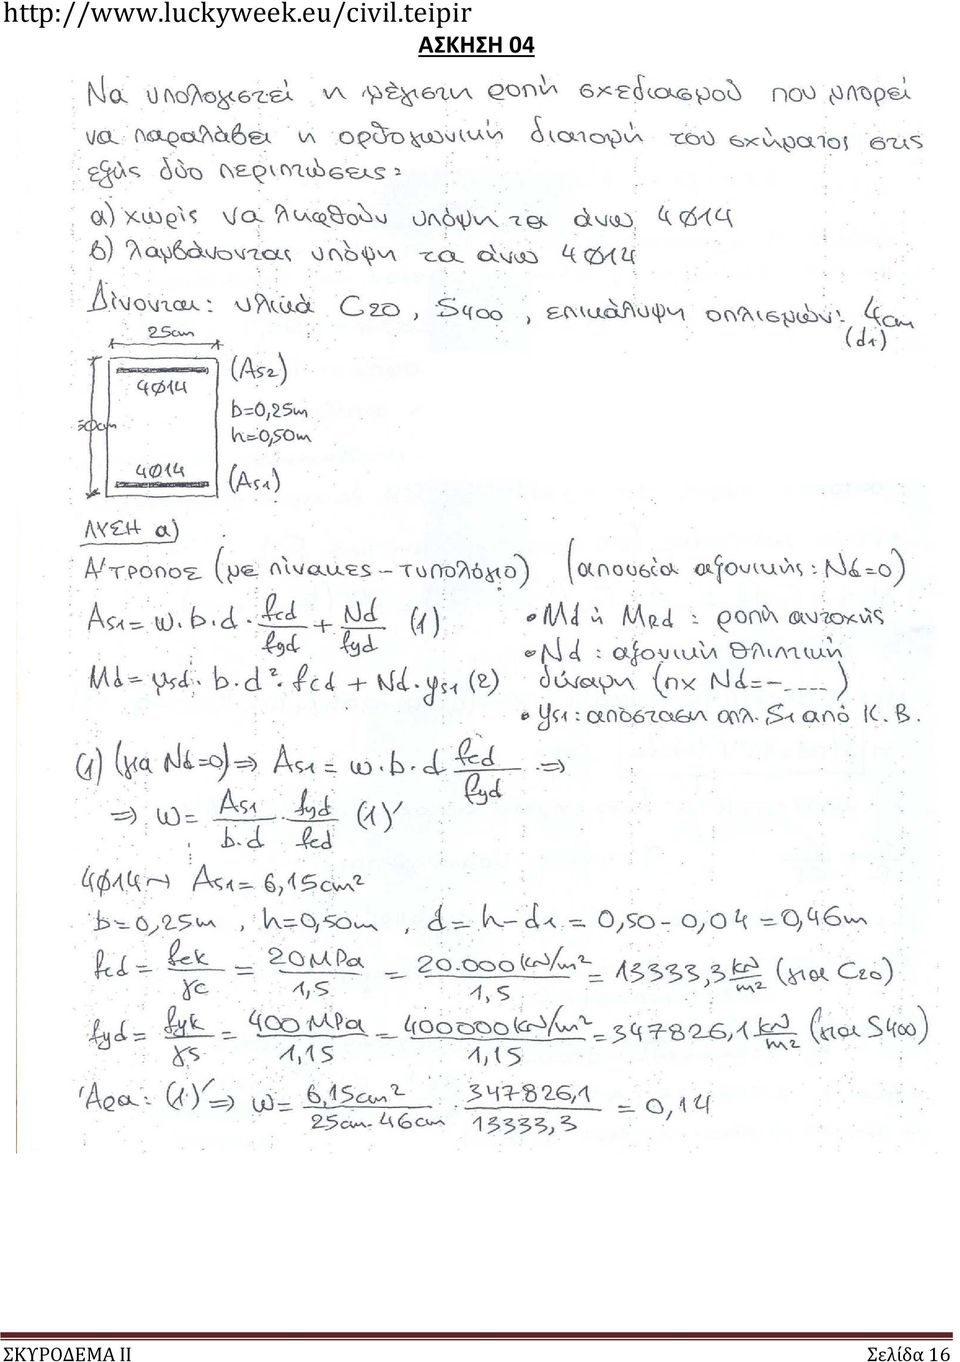 http://www.luckyweek.eu/civil.teipir
ΑΣΚΗΣΗ 04
Να υπολογιστεί η μέγιστη ροπή σχεδιασμού που μπορεί
να παραλάβει η ορθογωνική διατομή του σχήματος στις
εξής δύο περιπτώσεις:
α) χωρίς να ληφθούν υπόψη τα άνω 4Ø14
β) λαμβάνοντας υπόψη τα άνω 4Ø14
Δίνονται: υλικά C20, S400, επικάλυψη οπλισμών: 4cm
(d1)
25cm
(As2)
4Ø14
b=0,25m
50cm
h=0,50m
4Ø14
(As1)
ΛΥΣΗ α)
Α' ΤΡΟΠΟΣ (με πίνακες - τυπολόγιο) (απουσία αξονικής: Nd=0)
As1 = ω.b.d. fcd/fyd + Nd/fyd (1) • Md ή MRd : ροπή αντοχής
• Nd : αξονική θλιπτική
Md = μsd. b.d². fcd + Nd.ys1 (2) δύναμη (πχ Nd=-....)
• ys1: απόσταση οπλ. S1 από Κ.Β.
(1) (για Nd=0) ⇒ As1 = ω.b.d fcd/fyd ⇒
⇒ ω = As1/b.d . fyd/fcd (1)'
4Ø14 → As1 = 6,15cm²
b=0,25m, h=0,50m, d=h-d1=0,50-0,04=0,46m
fcd = fck/γc = 20MPa/1,5 = 20.000kN/m²/1,5 = 13333,3 kN/m² (για C20)
fyd = fyk/γs = 400MPa/1,15 = 400000kN/m²/1,15 = 347826,1 kN/m² (για S400)
Άρα: (1)' ⇒ ω = 6,15cm²/25cm.46cm . 347826,1/13333,3 = 0,14
ΣΚΥΡΟΔΕΜΑ ΙΙ Σελίδα 16